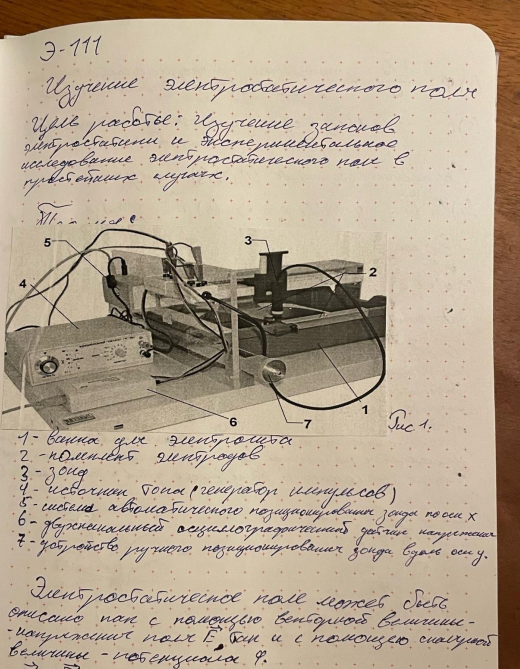 Э-111
Изучение электростатического поля
Цель работы: Изучение законов
электростатики и экспериментальное
исследование электростатического поля в
простейших случаях.
5
3
2
4
6
7
1
Рис 1.
1 - ванна для электролита
2 - комплект электродов
3 - зонд
4 - источник тока (генератор импульсов)
5 - система автоматического позиционирования зонда по оси x
6 - двухканальный осциллографический датчик напряжения
7 - устройство ручного позиционирования зонда вдоль оси y.
Электростатическое поле может быть
описано как с помощью векторной величины -
- напряжения поля E, так и с помощью скалярной
величины - потенциала φ.